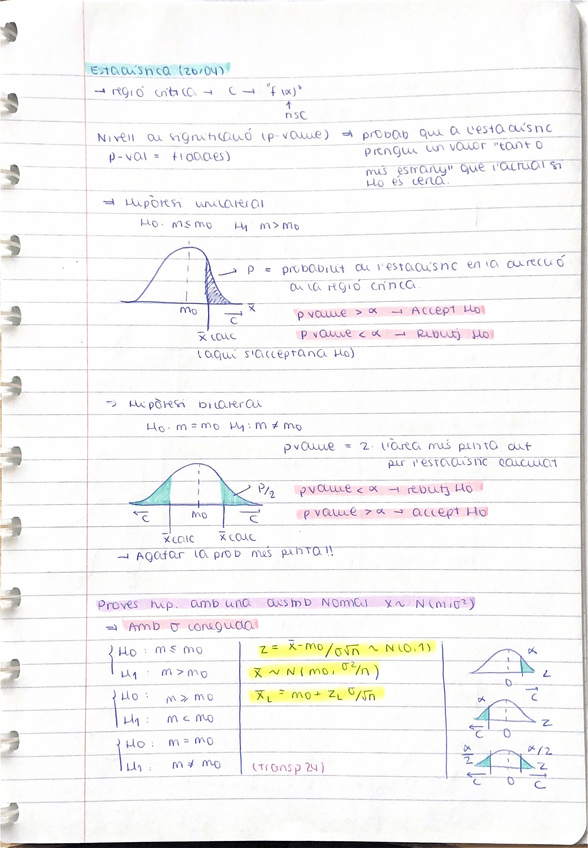 Estadística (26/04)
→ regió crítica → C → "f(x)"
↑
nsc
Nivell de significació (p-value) ⇒ probab que a l'estadístic
p-val = f(dades) prengui un valor "tant o
més estrany" que l'actual si
H0 és certa.
⇒ Hipòtesi unilateral
H0: m ≤ m0 H1 m > m0
→ p = probabilitat de l'estadístic en la direcció
de la regió crítica.
m0 C x̄
x̄ calc
p value > α → Accept H0
p value < α → Rebutj H0
(aquí s'acceptaria H0)
→ Hipòtesi bilateral
H0: m = m0 H1: m ≠ m0
pvalue = 2· l'àrea més petita dut
per l'estadístic calculat
P/2
C m0 C
x̄ calc x̄ calc
pvalue < α → rebutj H0
pvalue > α → accept H0
→ Agafar la prob més petita!!
Proves hip. amb una distrib Normal X ~ N(m,σ²)
→ Amb σ coneguda
H0: m ≤ m0
H1: m > m0
H0: m ≥ m0
H1: m < m0
H0: m = m0
H1: m ≠ m0
z = x̄ - m0/σ√n ~ N(0,1)
x̄ ~ N(m0, σ²/n)
x̄L = m0 + zL σ/√n
(Transp 24)
α
0 C Z
α
C 0 Z
α/2 α/2
C 0 C